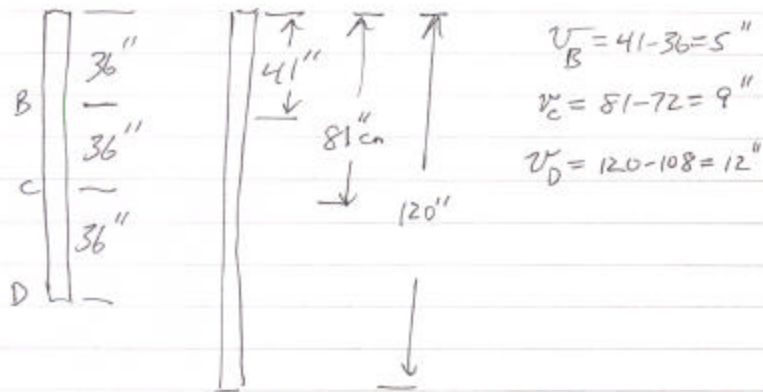 36"
B
36"
C
36"
D
41"
81"cm
120"
v_B = 41-36 = 5"
v_c = 81-72 = 9"
v_D = 120-108 = 12"